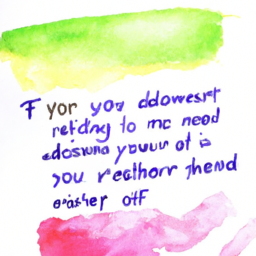 F yor you ddowesrt
retidng to mc need
edosruna youur ot is
you recthorr thend
easher otf